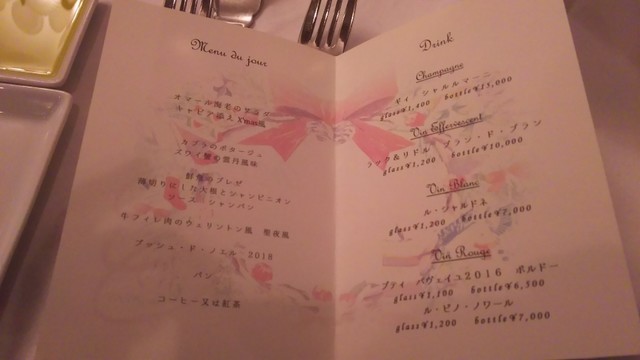 Menu du jour
オマール海老の
キャビア添え Xmas風
カブラのポタージュ
ズワイ蟹の雪月風味
鮮魚のブレゼ
薄切りにした大根とシャンピニオン
ソース シャンパン
牛フィレ肉のウェリントン風 聖夜風
ブッシュ・ド・ノエル 2018
パン
コーヒー又は紅茶
Drink
Champagne
ギィ・シャルルマーニュ
glass¥1,400 bottle¥15,000
Vin Effervescent
ブラン・ド・ブラン
glass¥1,200 bottle¥10,000
Vin Blanc
ル・シャルドネ
glass¥1,200 bottle¥7,000
Vin Rouge
プティ パヴェイユ2016 ボルドー
glass¥1,100 bottle¥6,500
ル・ピノ・ノワール
glass¥1,200 bottle¥7,000